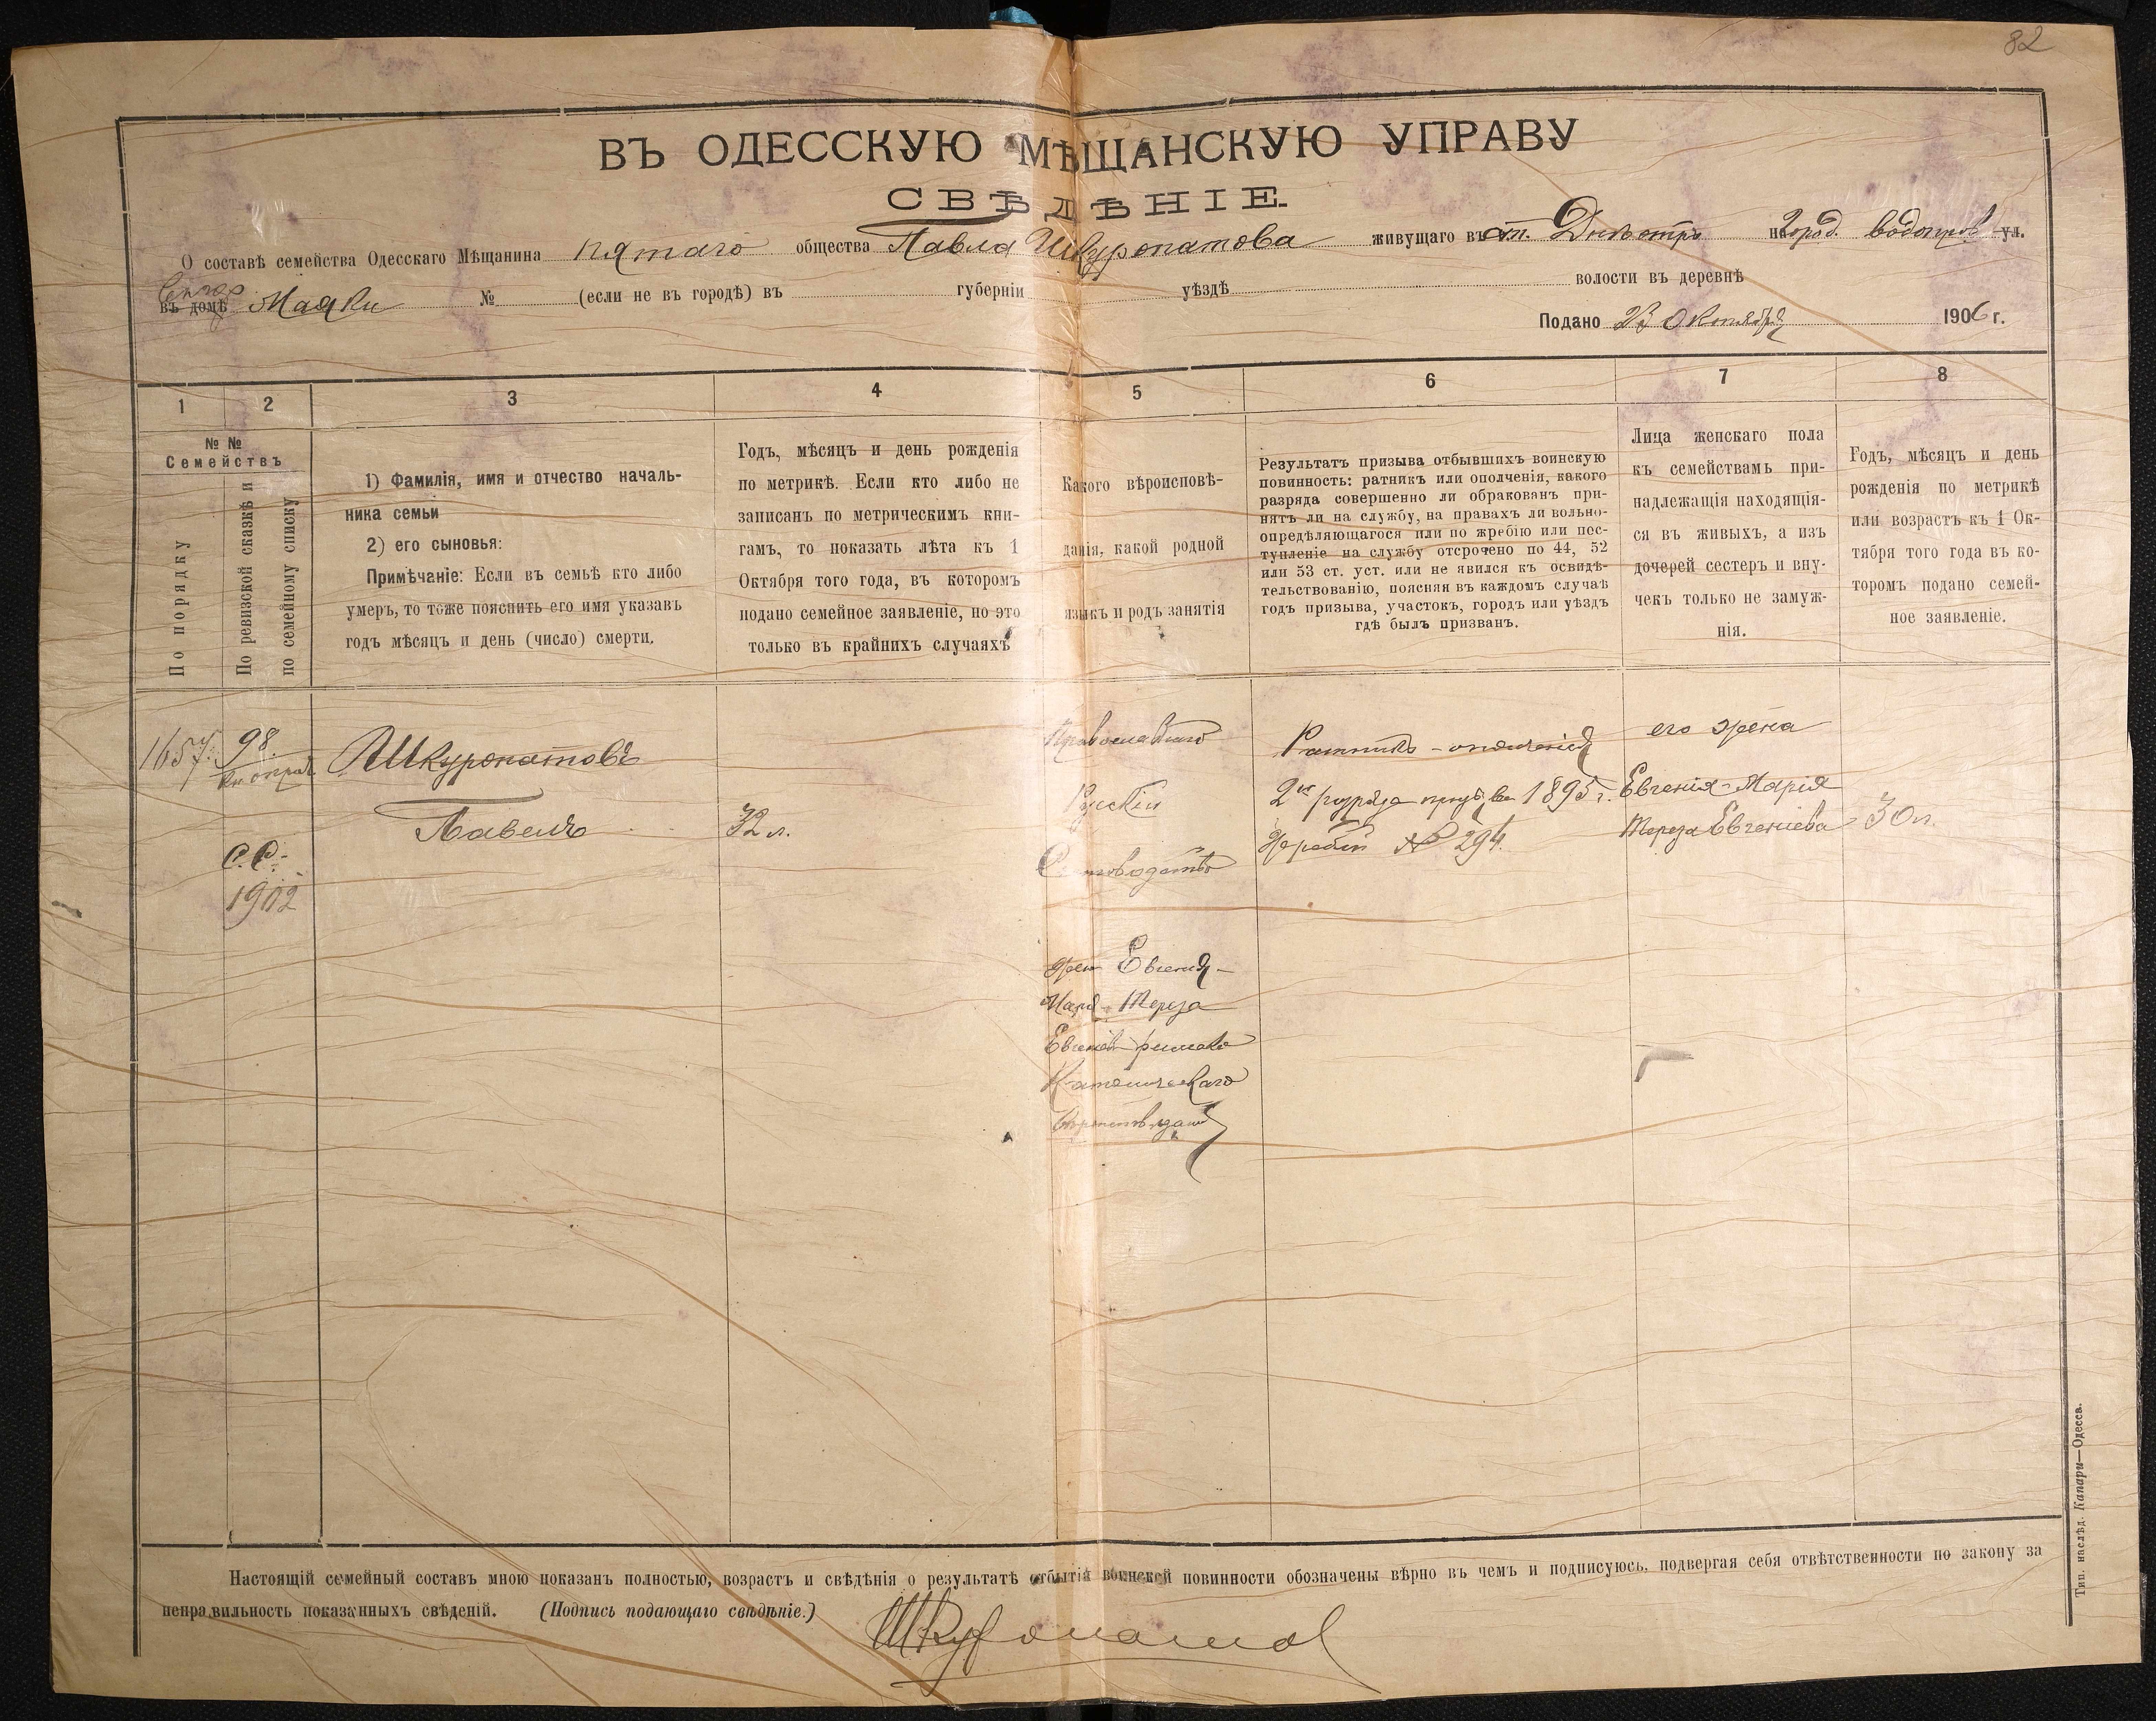 82
ВЪ ОДЕССКУЮ МѢЩАНСКУЮ УПРАВУ
СВѢДѢНІЕ.
О составѣ семейства Одесскаго Мѣщанина пятаго общества Павла Шкуропатова живущаго въ ст. Днѣстръ на город. водопров ул.
въ домѣ Маяки № (если не въ городѣ) въ губерніи уѣздѣ волости въ деревнѣ
Подано 23 Октября 1906 г.
1 2 3 4 5 6 7 8
№ №
Семействъ
По порядку
По ревизской сказкѣ и
по семейному списку
1) Фамилія, имя и отчество началь-
ника семьи
2) его сыновья:
Примѣчаніе: Если въ семьѣ кто либо
умеръ, то тоже пояснить его имя указавъ
годъ мѣсяцъ и день (число) смерти.
Годъ, мѣсяцъ и день рожденія
по метрикѣ. Если кто либо не
записанъ по метрическимъ кни-
гамъ, то показать лѣта къ 1
Октября того года, въ которомъ
подано семейное заявленіе, но это
только въ крайнихъ случаяхъ
Какого вѣроисповѣ-
данія, какой родной
языкъ и родъ занятія
Результатъ призыва отбывшихъ воинскую
повинность: ратникъ или ополченія, какого
разряда совершенно ли обракованъ при-
нятъ ли на службу, на правахъ ли вольно-
опредѣляющагося или по жребію или пос-
тупленіе на службу отсрочено по 44, 52
или 53 ст. уст. или не явился къ освидѣ-
тельствованію, поясняя въ каждомъ случаѣ
годъ призыва, участокъ, городъ или уѣздъ
гдѣ былъ призванъ.
Лица женскаго пола
къ семействамъ при-
надлежащія находящія-
ся въ живыхъ, а изъ
дочерей сестеръ и вну-
чекъ только не замуж-
нія.
Годъ, мѣсяцъ и день
рожденія по метрикѣ
или возрастъ къ 1 Ок-
тября того года въ ко-
торомъ подано семей-
ное заявленіе.
1657. 98.
Шкуропатовъ
Павелъ
32 л.
С. С.
1902
Православнаго
Русскій
Жена Евгенія-
Марія-Тереза
Евгеніева римско
Католическаго
вѣроисповѣданія
Ратникъ-ополченія
2го разряда призыва 1895 г.
Жеребій № 294.
его жена
Евгенія-Марія
Тереза Евгеніева
30 л.
Настоящій семейный составъ мною показанъ полностью, возрастъ и свѣдѣнія о результатѣ отбытія воинской повинности обозначены вѣрно въ чемъ и подписуюсь, подвергая себя отвѣтственности по закону за
неправильность показанныхъ свѣденій. (Подпись подающаго свѣдѣніе.)
Шкуропатов
Тип. наслѣд. Капари—Одесса.